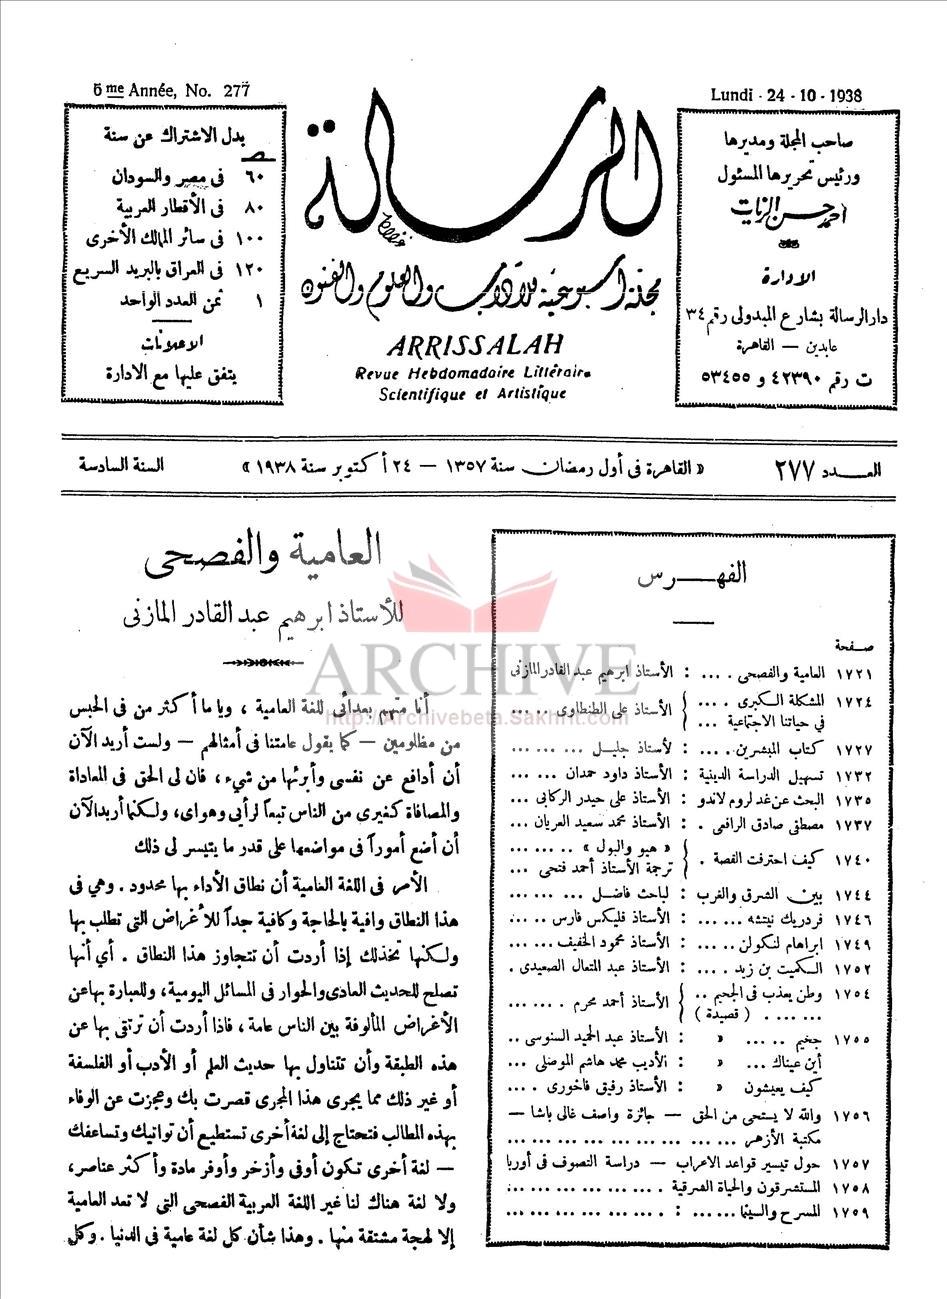 6me Année, No. 277
Lundi - 24 - 10 - 1938
صاحب المجلة ومديرها
ورئيس تحريرها المسئول
احمد حسن الزيات
الادارة
دار الرسالة بشارع المبدولى رقم ٣٤
عابدين — القاهرة
ت رقم ٤٢٣٩٠ و ٥٣٤٥٥
الرسالة
مجلة أسبوعية للآداب والعلوم والفنون
ARRISSALAH
Revue Hebdomadaire Littéraire
Scientifique et Artistique
بدل الاشتراك عن سنة
٦٠ فى مصر والسودان
٨٠ فى الأقطار العربية
١٠٠ فى سائر الممالك الأخرى
١٢٠ فى العراق بالبريد السريع
١ ثمن العدد الواحد
الاعلانات
يتفق عليها مع الادارة
العـــدد ٢٧٧
« القاهرة فى أول رمضان سنة ١٣٥٧ — ٢٤ أكتوبر سنة ١٩٣٨ »
السنة السادسة
الفهـــرس
صفحة
١٧٢١ العامية والفصحى . ... : الأستاذ ابرهيم عبد القادر المازنى
١٧٢٤ المشكلة الكبرى . ... فى حياتنا الاجتماعية ... } الأستاذ على الطنطاوى .. ...
١٧٢٧ كتاب المبشرين . ... : لأستاذ جليـل ... ... ...
١٧٣٢ تسهيل الدراسة الدينية : الأستاذ داود حمدان ... ...
١٧٣٥ البحث عن غد لروم لاندو : الأستاذ على حيدر الركابى ...
١٧٣٧ مصطفى صادق الرافعى . : الأستاذ محمد سعيد العريان ...
١٧٤٠ كيف احترفت القصة . { « هيو والبول » .. ... ... ترجمة الأستاذ أحمد فتحى ...
١٧٤٤ بين الشرق والغرب : لباحث فاضـل ... ... ...
١٧٤٦ فردريك نيتشه ... ... : الأستاذ فليكس فارس .. ...
١٧٤٩ ابراهام لنكولن .. ... : الأستاذ محمود الخفيف ... ...
١٧٥٢ الـكميت بن زيد . ... : الأستاذ عبد المتعال الصعيدى .
١٧٥٤ وطن يعذب فى الجحيم .. ... ... . ( قصيدة ) } الأستاذ أحمد محرم . ... ...
١٧٥٥ جحيم .. ... « : الأستاذ عبد الحميد السنوسى ..
أين عيناك ... « : الأديب محمد هاشم الموصلى ...
كيف يعيشون « : الأستاذ رفيق فاخورى . ...
١٧٥٦ والله لا يستحى من الحق — جائزة واصف غالى باشا —
مكتبة الأزهر ... ... ... ... ... ... ... ...
١٧٥٧ حول تيسير قواعد الاعراب — دراسة التصوف فى أوربا
١٧٥٨ المستشرقون والحياة الشرقية . ... ... ... ... ...
١٧٥٩ المسرح والسينما ... ... : . ... ... ... ... ...
العامية والفصحى
للأستاذ ابرهيم عبد القادر المازنى
أنا متهم بعدائى للغة العامية ، ويا ما أكثر من فى الحبس
من مظلومين — كما يقول عامتنا فى أمثالهم — ولست أريد الآن
أن أدافع عن نفسى وأبرئها من شيء ، فان لى الحق فى المعاداة
والمصافاة كغيرى من الناس تبعاً لرأيى وهواى، ولكنما أريد الآن
أن أضع أموراً فى مواضعها على قدر ما يتيسر لى ذلك
الأمر فى اللغة العامية أن نطاق الأداء بها محدود . وهي فى
هذا النطاق وافية بالحاجة وكافية جداً للأغراض التى تطلب بها
ولـكنها تخذلك إذا أردت أن تتجاوز هذا النطاق . أي أنها
تصلح للحديث العادى والحوار فى المسائل اليومية، وللعبارة بها عن
الأغراض المألوفة بين الناس عامة ، فاذا أردت أن ترتقى بها عن
هذه الطبقة وأن تتناول بها حديث العلم أو الأدب أو الفلسفة
أو غير ذلك مما يجرى هذا المجرى قصرت بك وعجزت عن الوفاء
بهذه المطالب فتحتاج إلى لغة أخرى تستطيع أن تواتيك وتساعفك
— لغة أخرى تـكون أوفى وأزخر وأوفر مادة وأكثر عناصر،
ولا لغة هناك لنا غير اللغة العربية الفصحى التى لا تعد العامية
إلا لهجة مشتقة منها . وهذا شأن كل لغة عامية فى الدنيا . وكل
ARCHIVE
http://Archivebeta.Sakhrit.com